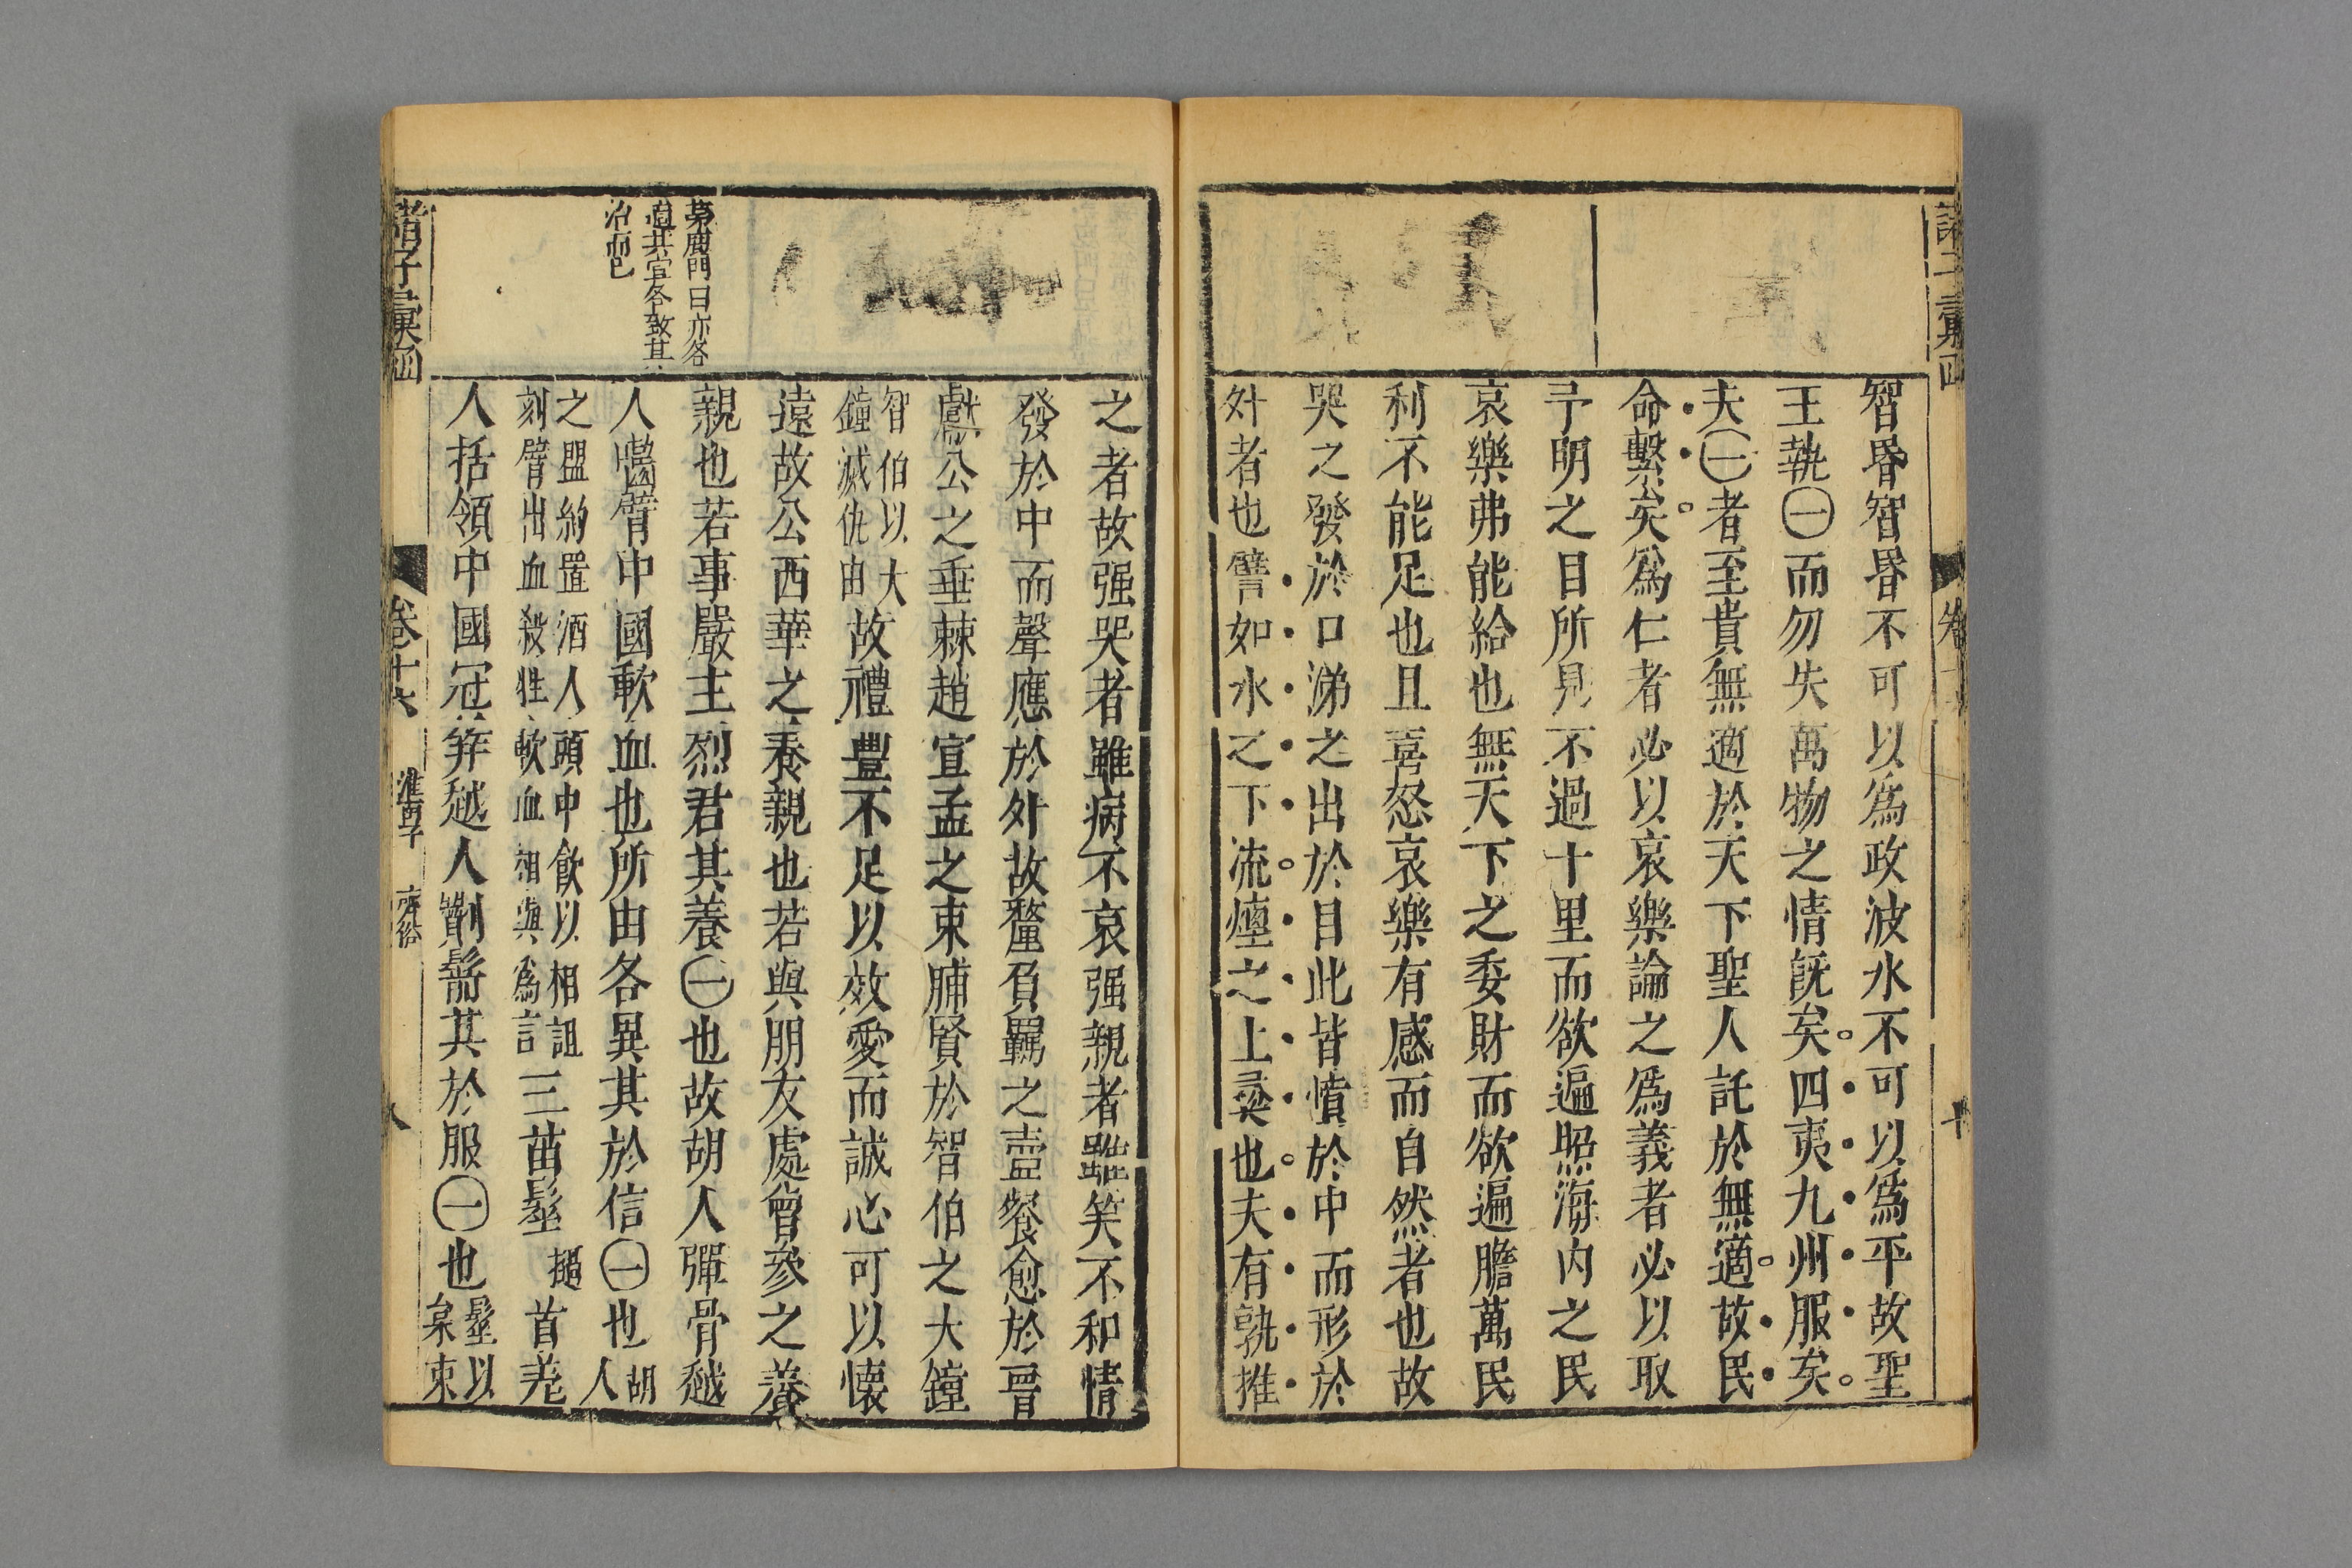 智昬智昬不可以爲政波水不可以爲平故聖
王執㊀而勿失萬物之情旣矣四夷九州服矣
夫㊀者至貴無適於天下聖人託於無適故民
命繫矣爲仁者必以哀樂論之爲義者必以取
予明之目所見不過十里而欲遍照海内之民
哀樂弗能給也無天下之委財而欲遍贍萬民
利不能足也且喜怒哀樂有感而自然者也故
哭之發於口涕之出於目此皆憤於中而形於
外者也譬如水之下流煙之上㷱也夫有孰推
之者故强哭者雖病不哀强親者雖笑不和情
發於中而聲應於外故釐負羈之壼餐愈於晉
獻公之垂棘趙宣孟之束脯賢於智伯之大鐘
智伯以大鐘滅仇由故禮豐不足以效愛而誠心可以懷
遠故公西華之養親也若與朋友處曾參之養
親也若事嚴主烈君其養㊀也故胡人彈骨越
人齧臂中國歃血也所由各異其於信㊀也胡人
之盟約置酒人頭中飮以相詛刻臂出血殺牲歃血相與爲言三苗髽首羌
人括領中國冠笄越人劗鬋其於服㊀也髽以枲束
茅鹿門曰亦各
適其宜各致其
治而已
諸子彙函
卷十六
淮南子
齊俗
八